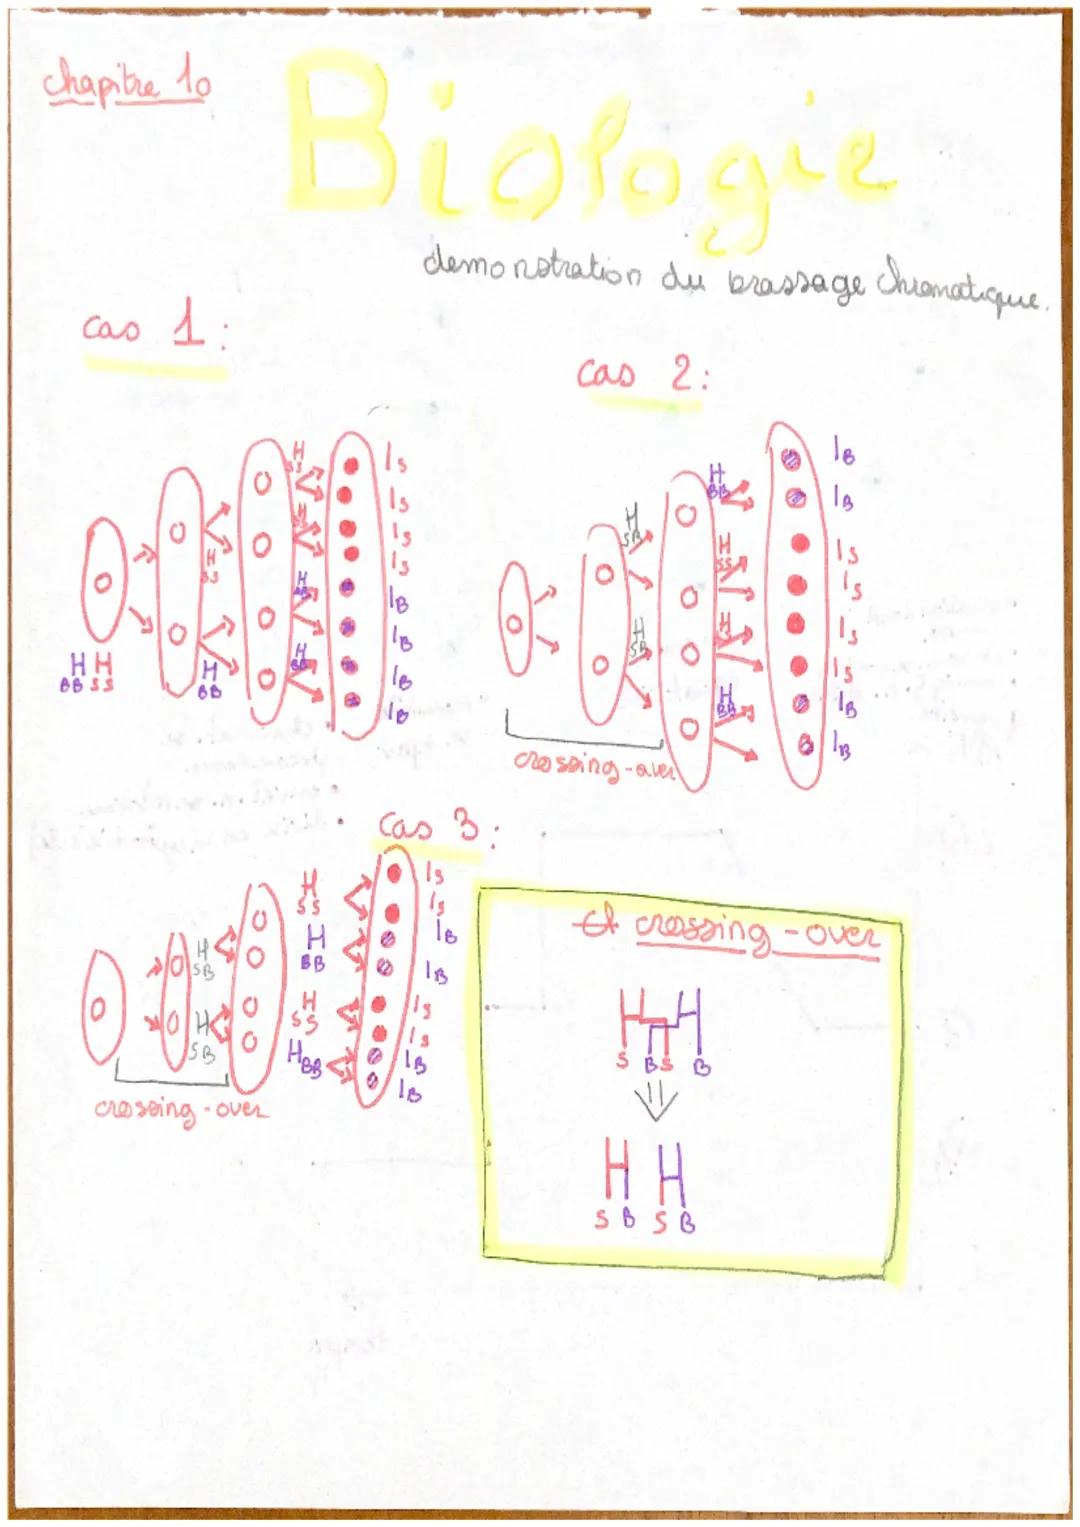 chapitre 10
Biologie
demonstration du brassage Chromatique.
cas 1 :
cas 2 :
H
SS
H
SS
H
BB
H
BB
H
SS
H
BB
H H
BB SS
1s
1s
1s
1s
1B
1B
1B
1B
H
SB
H
SB
H
BB
H
SS
H
SS
H
BB
1B
1B
1s
1s
1s
1s
1B
1B
crossing-over
cas 3 :
H
SB
H
SB
H
SS
H
BB
H
SS
H BB
1s
1s
1B
1B
1s
1s
1B
1B
crossing-over
crossing-over
S B S B
H H
S B S B